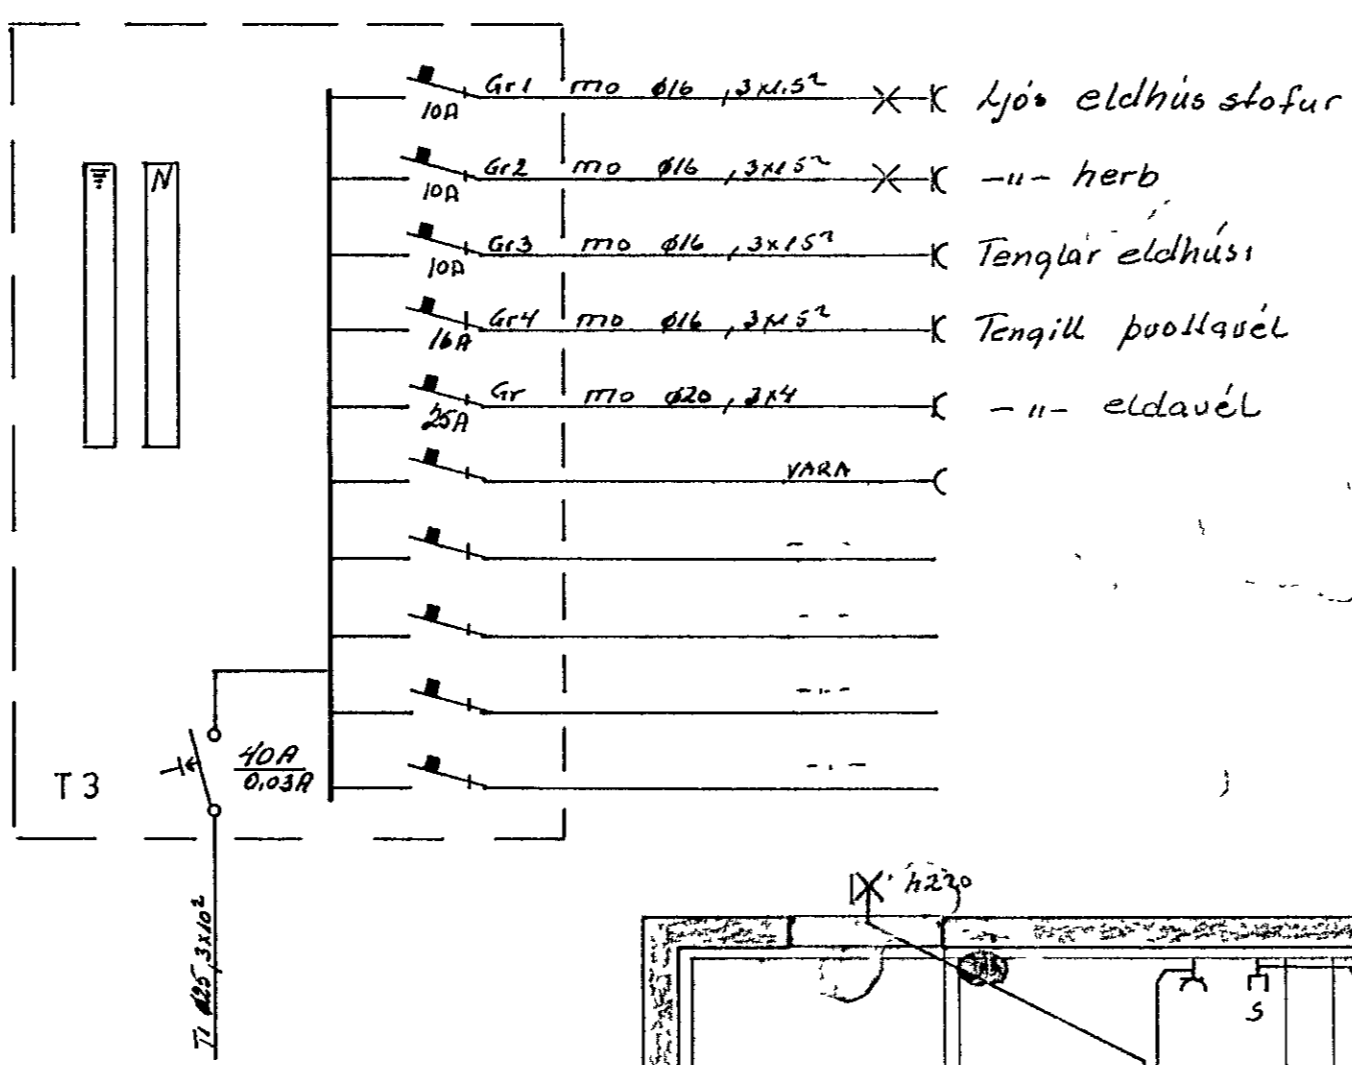 Gr1 mo ø16, 3x1.5² Ljós eldhús stofur
10A
Gr2 mo ø16, 3x1.5² -"- herb
10A
N
Gr3 mo ø16, 3x1.5² Tenglar eldhúsi
10A
Gr4 mo ø16, 3x1.5² Tengill þvottavél
16A
Gr mo ø20, 3x4 -"- eldavél
25A
VARA
-"-
-"-
-"-
-"-
40A
0,03A
T3
T1 ø25, 3x10²
h220
S